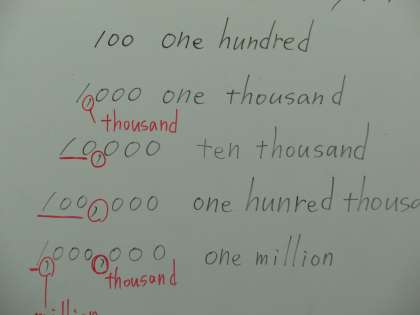 100 one hundred
1,000 one thousand
thousand
10,000 ten thousand
100,000 one hunred thousa
1,000,000 one million
thousand
million